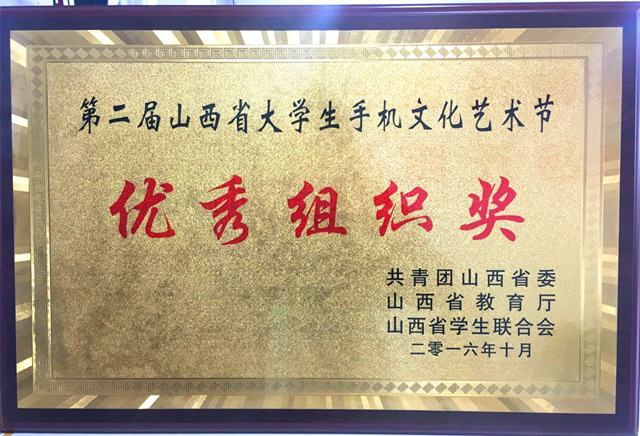 第二届山西省大学生手机文化艺术节
优秀组织奖
共青团山西省委
山西省教育厅
山西省学生联合会
二零一六年十月